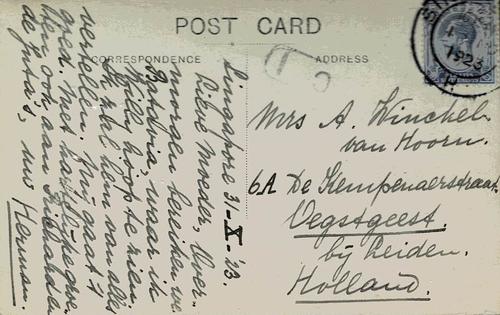 POST CARD
CORRESPONDENCE
ADDRESS
1923
Singapore 31-X-'23.
Lieve Moeder, Over-
morgen bereiken we
Batavia, waar ik
Willy hoop te zien.
Ik zal hem van alles
vertellen. Mij gaat 't
goed. Met hartelijke groe-
ten ook aan
de Juta's, uw Herman.
Mrs A. Winckel-
van Hoorn.
6A De Kempenaerstraat.
Oegstgeest.
bij Leiden.
Holland.